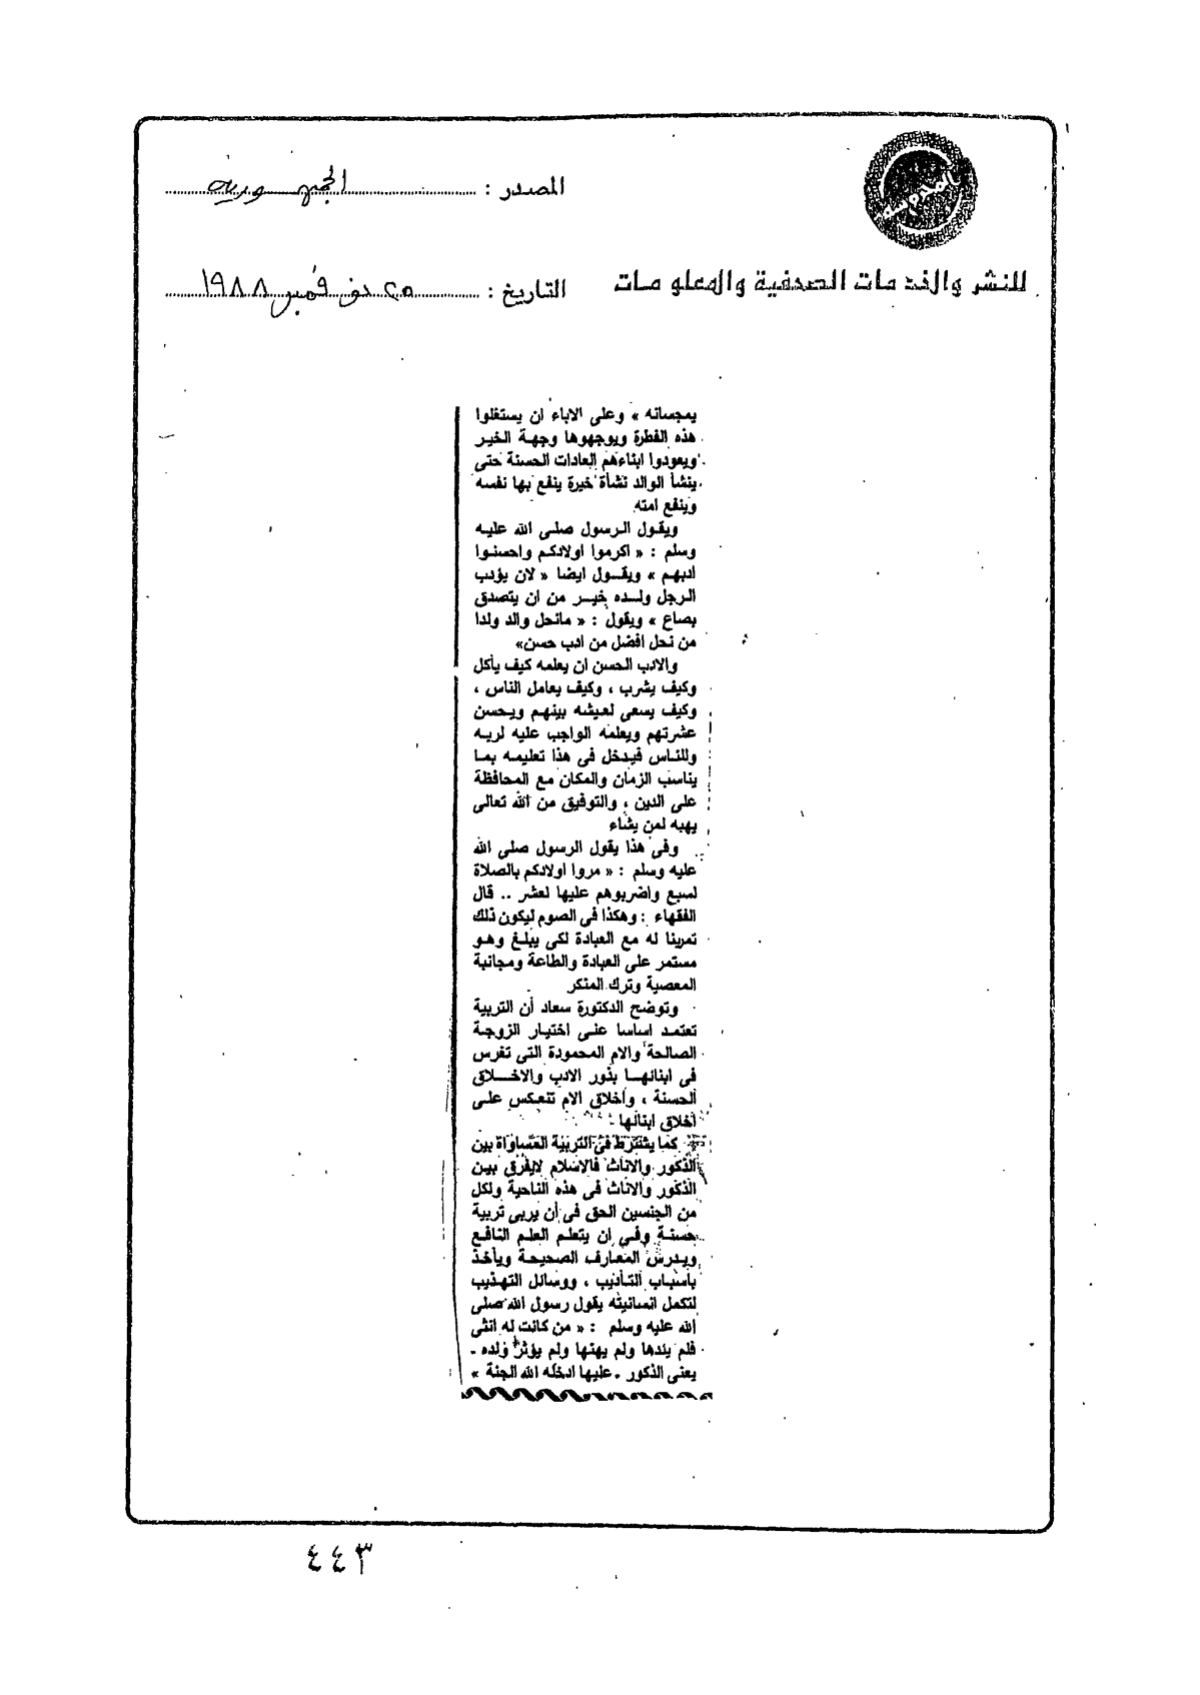 المصدر : الجمهورية
للنشر والخدمات الصحفية والمعلومات
التاريخ : ٢٥ نوفمبر ١٩٨٨
يمجسانه » وعلى الاباء ان يستغلوا
هذه الفطرة ويوجهوها وجهة الخير
ويعودوا ابناءهم العادات الحسنة حتى
ينشأ الوالد نشأة خيرة ينفع بها نفسه
وينفع امته
ويقول الرسول صلى الله عليه
وسلم : « اكرموا اولادكم واحسنوا
ادبهم » ويقول ايضا « لان يؤدب
الرجل ولده خير من ان يتصدق
بصاع » ويقول : « مانحل والد ولدا
من نحل افضل من ادب حسن»
والادب الحسن ان يعلمه كيف يأكل
وكيف يشرب ، وكيف يعامل الناس ،
وكيف يسعى لعيشه بينهم ويحسن
عشرتهم ويعلمه الواجب عليه لربه
وللناس فيدخل فى هذا تعليمه بما
يناسب الزمان والمكان مع المحافظة
على الدين ، والتوفيق من الله تعالى
يهبه لمن يشاء
وفى هذا يقول الرسول صلى الله
عليه وسلم : « مروا اولادكم بالصلاة
لسبع واضربوهم عليها لعشر .. قال
الفقهاء : وهكذا فى الصوم ليكون ذلك
تمرينا له مع العبادة لكى يبلغ وهو
مستمر على العبادة والطاعة ومجانبة
المعصية وترك المنكر
وتوضح الدكتورة سعاد أن التربية
تعتمد اساسا على اختيار الزوجة
الصالحة والام المحمودة التى تغرس
فى ابنائها بذور الادب والاخلاق
الحسنة ، واخلاق الام تنعكس على
اخلاق ابنائها
كما يشترط فى التربية المساواة بين
الذكور والاناث فالاسلام لايفرق بين
الذكور والاناث فى هذه الناحية ولكل
من الجنسين الحق فى أن يربى تربية
حسنة وفى ان يتعلم العلم النافع
ويدرس المعارف الصحيحة ويأخذ
بأسباب التأديب ، ووسائل التهذيب
لتكمل انسانيته يقول رسول الله صلى
الله عليه وسلم : « من كانت له انثى
فلم يئدها ولم يهنها ولم يؤثر ولده -
يعنى الذكور - عليها ادخله الله الجنة »
٤٤٣